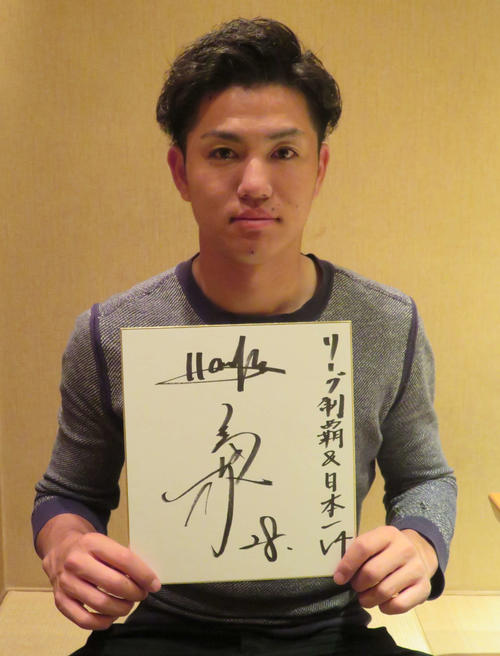 リーグ制覇&日本一
Hawks
28.